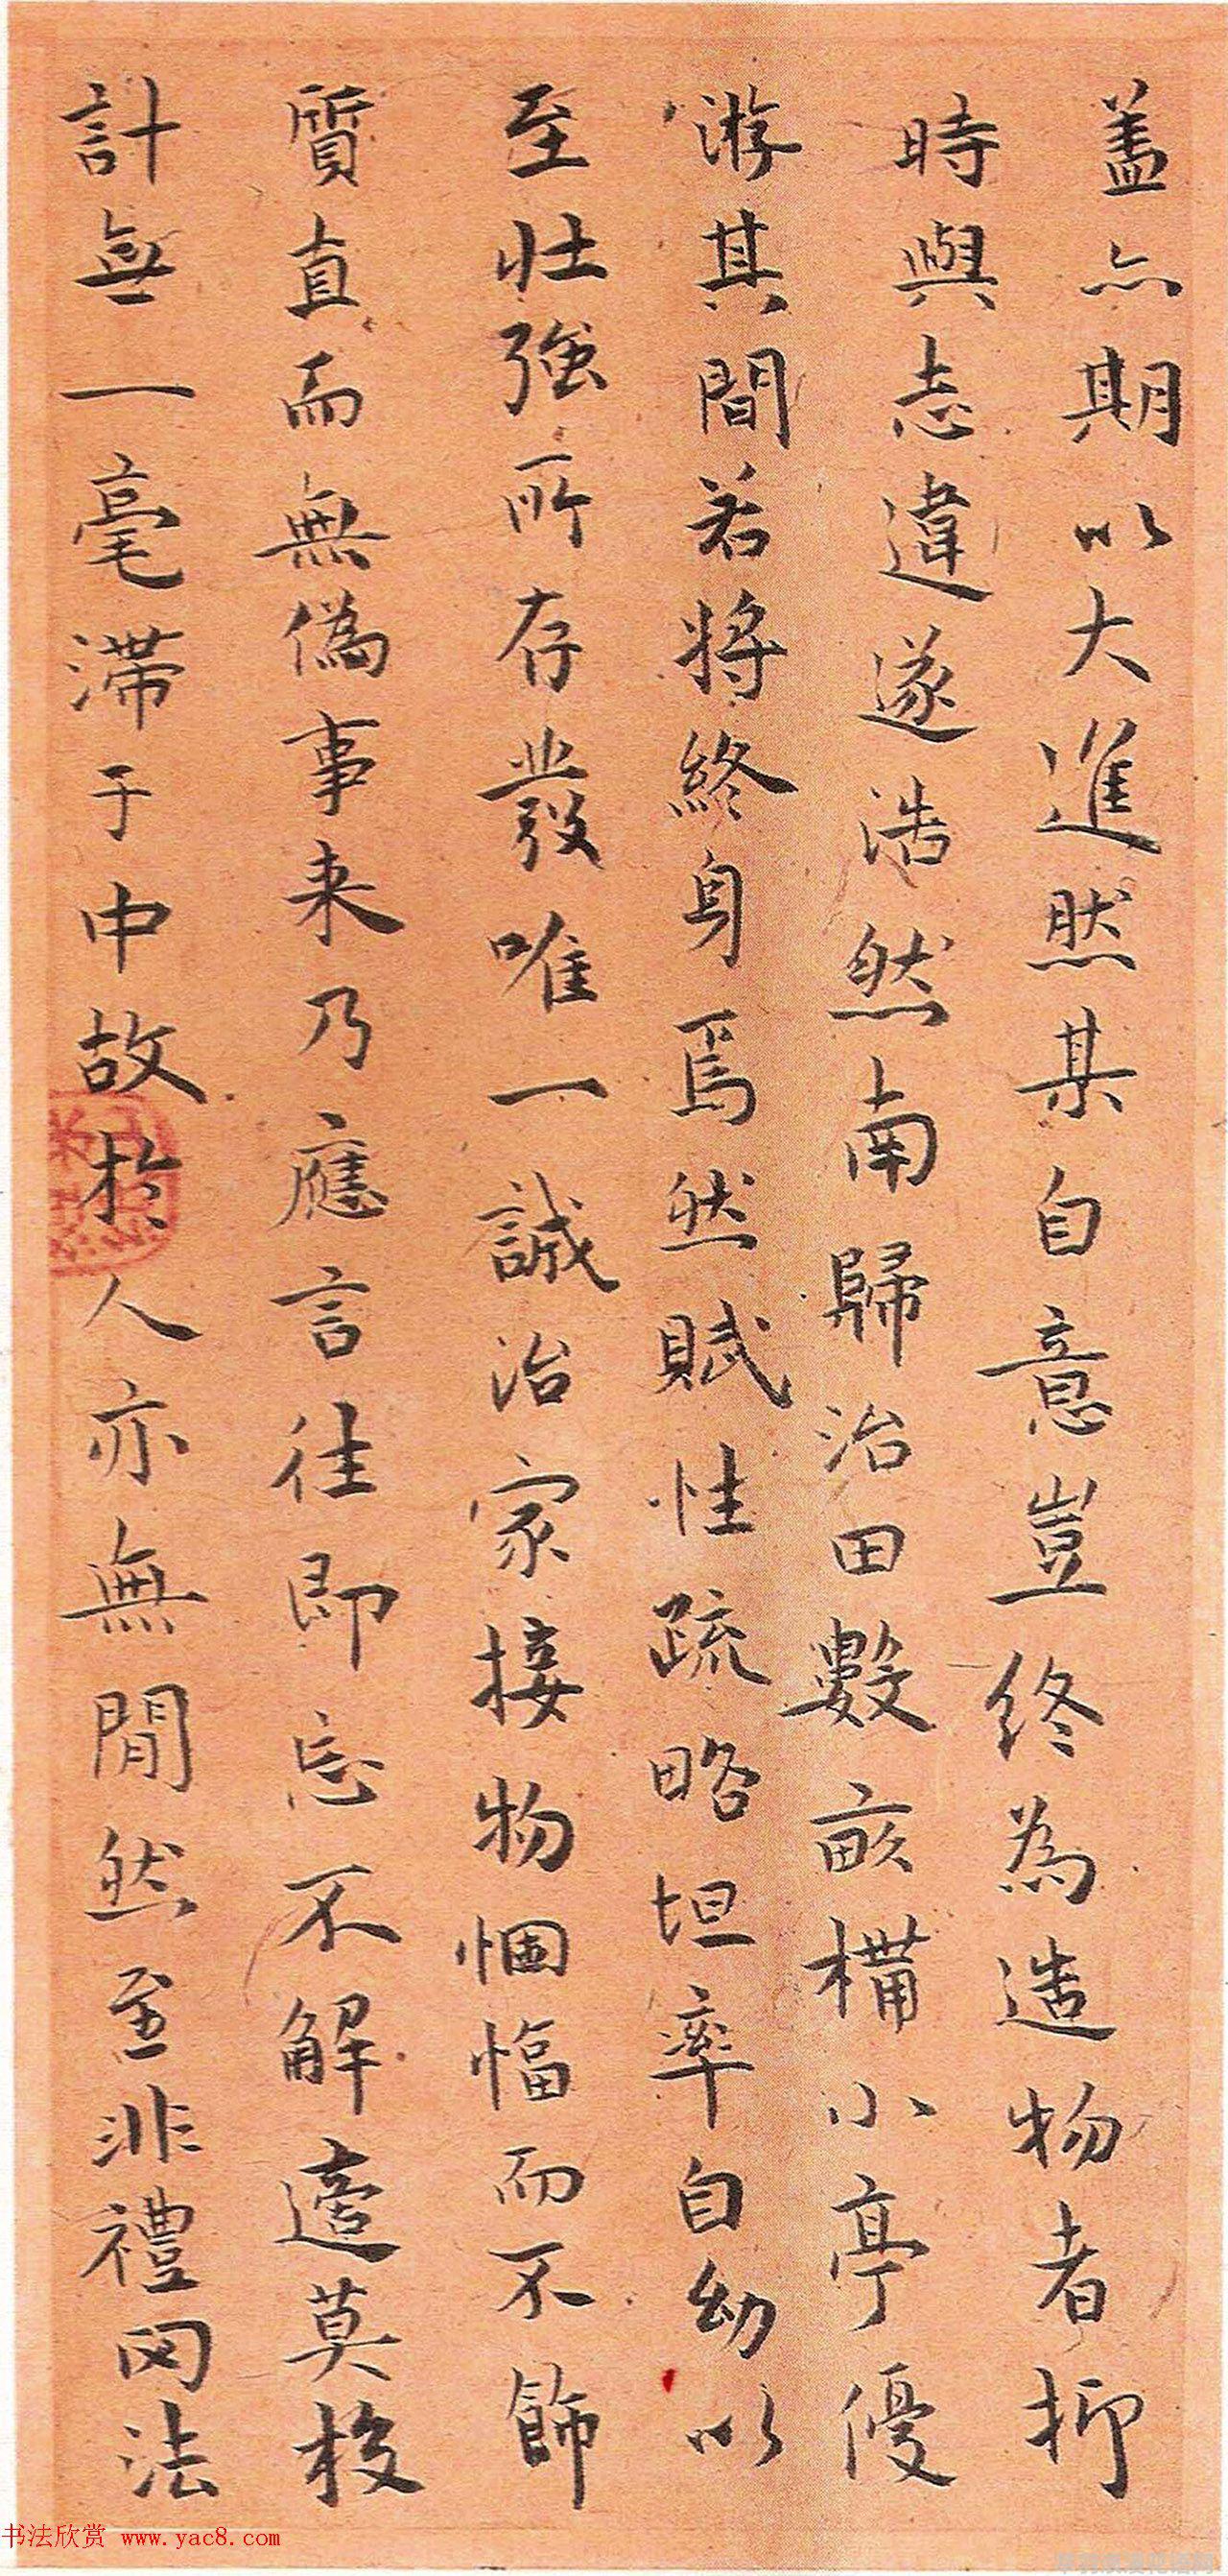 盖亦期以大進然某自意豈終為造物者抑
時與志違遂浩然南歸治田數畝構小亭優
游其間若將終身焉然賦性疏略坦率自幼以
至壮強所存發唯一誠治家接物悃愊而不飾
質直而無偽事来乃應言往即忘不解違莫校
計無一毫滞于中故於人亦無間然至非禮罔法
书法欣赏 www.yac8.com